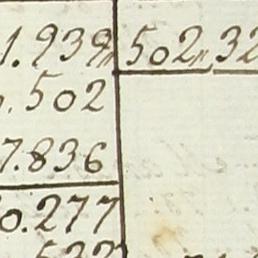 1.939 502 32
.502
7.836
0.277
532